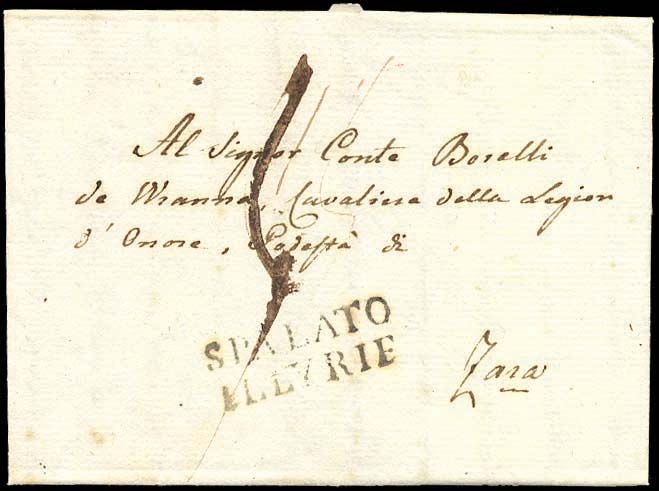 Al Signor Conte Borelli
de Wranna, Cavaliere della Legion
d' Onore, Podestà di
SPALATO
ILLYRIE
Zara